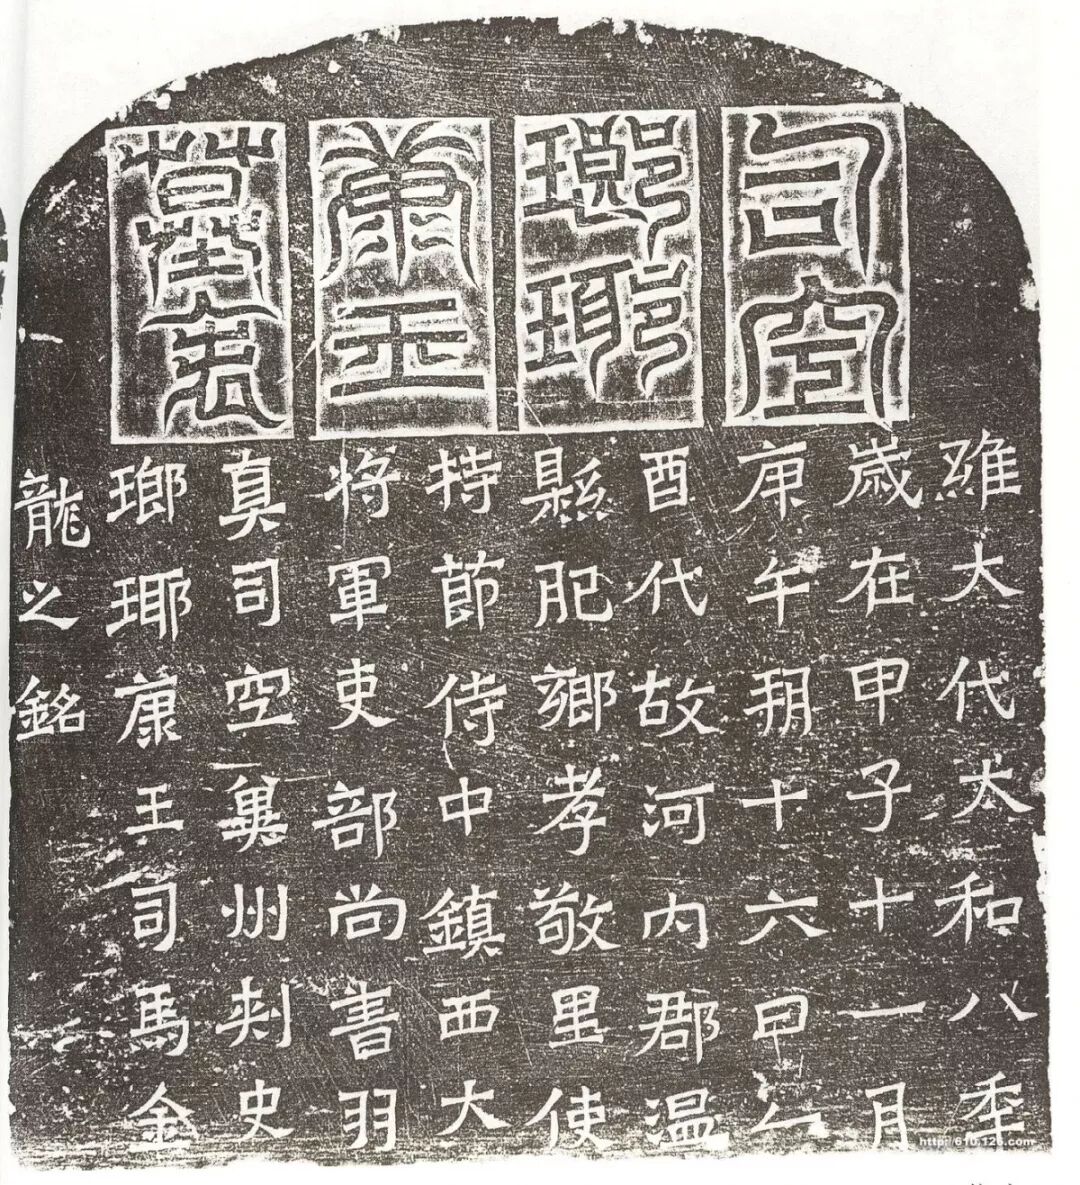 司空
瑯琊
康王
墓表
維大代太和八年
歲在甲子十一月
庚午朔十六日乙
酉代故河內郡溫
縣肥鄉孝敬里使
持節侍中鎮西大
將軍吏部尚書羽
真司空冀州刺史
瑯琊康王司馬金
龍之銘
http://610.126.com